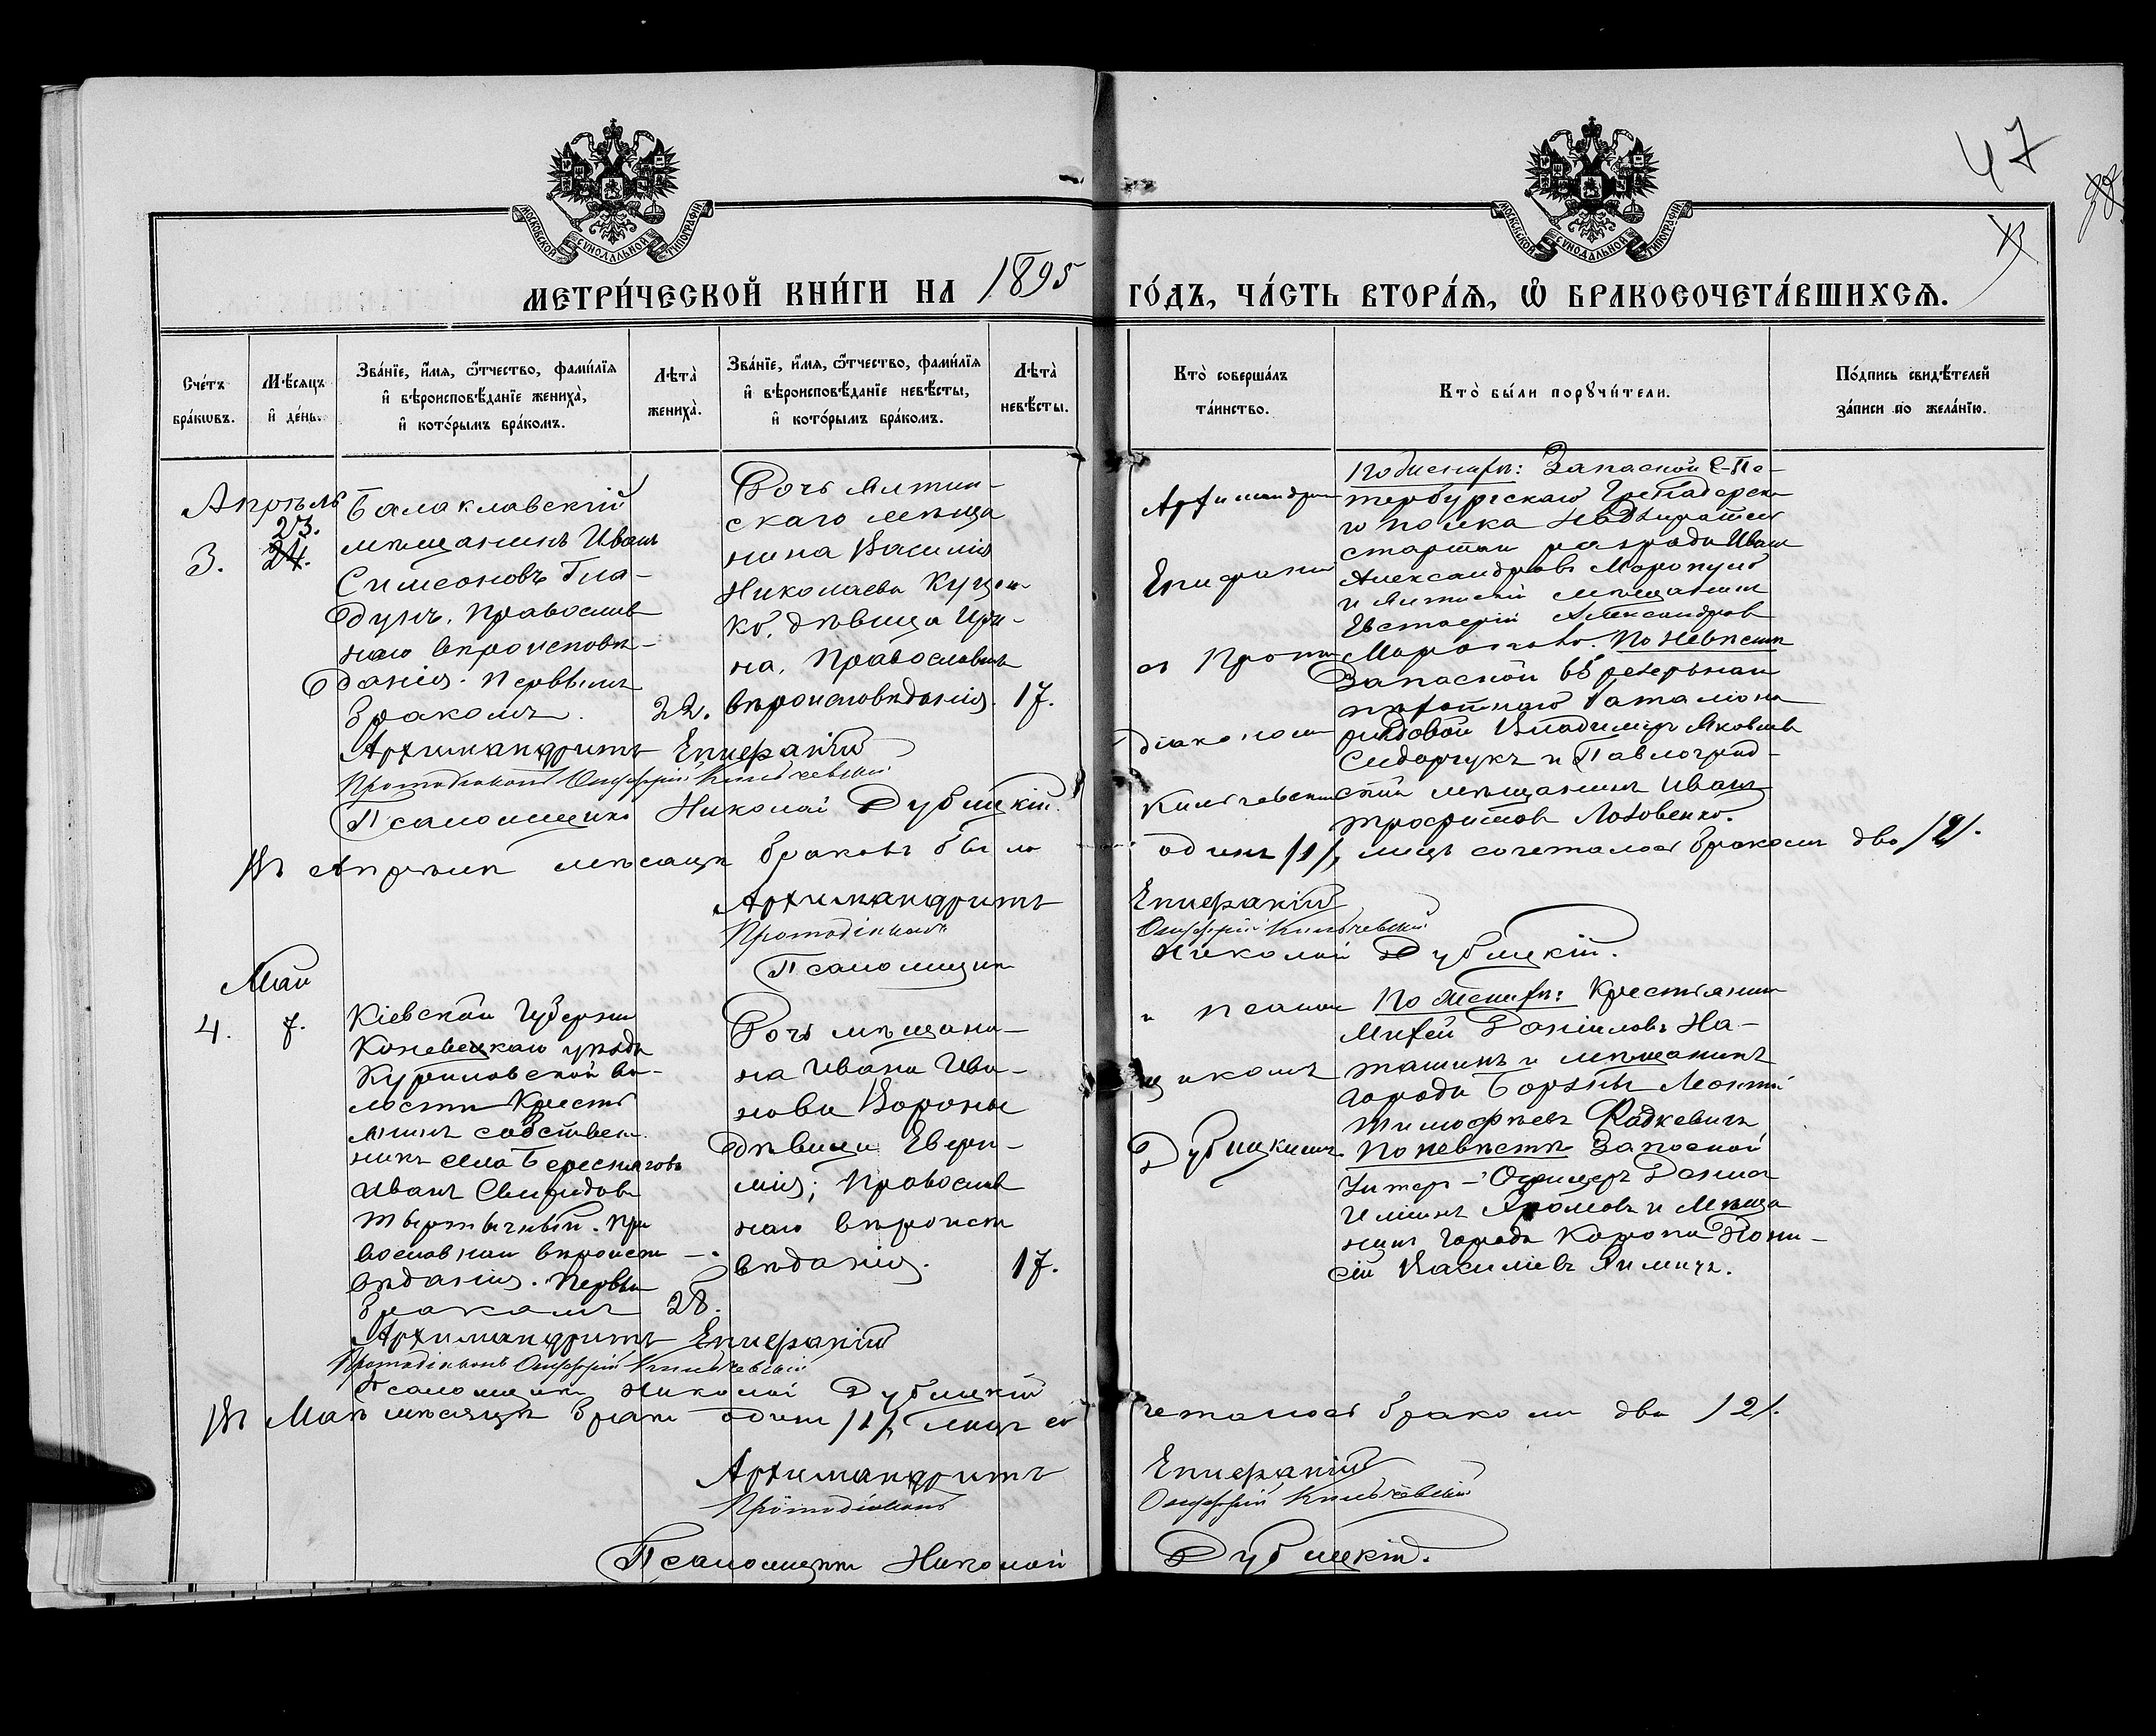 47
МОСКОВСКОЙ СѴНОДАЛЬНОЙ ТИПОГРАФІИ
МОСКОВСКОЙ СѴНОДАЛЬНОЙ ТИПОГРАФІИ
МЕТРИ́ЧЕСКОЙ КНИ́ГИ НА 1895 ГО́ДЪ, ЧА́СТЬ ВТОРА́Ѧ, Ѡ҆ БРАКОСОЧЕТА́ВШИХСѦ.
Сче́тъ
бра́кѡвъ.
Мѣ́сяцъ
и҆ де́нь.
Зва́нїе, и҆́мѧ, ѻ҆́тчество, фами́лїѧ
и҆ вѣроисповѣ́данїе жениха̀,
и҆ кото́рымъ бра́комъ.
Лѣта̀
жениха̀.
Зва́нїе, и҆́мѧ, ѻ҆́тчество, фами́лїѧ
и҆ вѣроисповѣ́данїе невѣ́сты,
и҆ кото́рымъ бра́комъ.
Лѣта̀
невѣ́сты.
Кто̀ соверша́лъ
та́инство.
Кто̀ бы́ли порꙋчи́тели.
По́дпись свидѣ́телей
за́писи по жела́нїю.
Апрѣль
23.
3. 24.
Балаклавскій
мѣщанинъ Иванъ
Симеоновъ Гла-
дунъ, православ
наго вѣроисповѣ-
данія. Первымъ
бракомъ. 22.
Дочь Ялтин-
скаго мѣща
нина Василія
Николаева Куцен
ко, дѣвица Ири-
на, Православн
вѣроисповѣданія. 17.
Архимандрит
Епифаній
съ Прото
діакономъ
Кильчевским
По женихѣ: Запасной С-Пе-
тербургскаго Гренадерска
го полка Надзиратель
старшаго разряда Иванъ
Александровъ Маропуло
и Ялтинскій мѣщанинъ
Евстафій Александров
Маропуло. По невѣстѣ
Запасной резервнаго
пѣхотнаго баталіона
рядовой Владимиръ Яковлев
Сидорчукъ и Павлоград-
скій мѣщанинъ Иванъ
Трофимовъ Лазовенко.
Архимандритъ Епифаній
Протодіаконъ Онуфрій Кильчевскій
Псаломщикъ Николай Дублицкій.
Въ Апрѣлѣ мѣсяцѣ браковъ было один /1/, лицъ сочеталось бракомъ два /2/.
Архимандритъ Епифаній
Протодіаконъ Онуфрій Кильчевскій
Псаломщик Николай Дублицкій.
Май
4. 7.
Кіевской Губерніи
Каневецкаго уѣзда
Куриловской во-
лости Кресть
янинъ собствен
никъ села Берестнягов
Иванъ Свиридов
Тертычный. Пра
вославнаго вѣроиспо
вѣданія. Первым
бракомъ 28.
Дочь мѣщани-
на Ивана Ива-
нова Вороны
дѣвица Евфи-
мія; Православ
наго вѣроиспо
вѣданія. 17.
и псалом
щикомъ
Дублицкимъ
По женихѣ: Крестьянин
Михей Даніиловъ На-
ташинъ и мѣщанинъ
города Борзны
Тимофѣевъ Радкевичъ
По невѣстѣ Запасной
Унтер-Офицеръ
и Мѣща
нинъ Города Коропа Діони-
сій Василіевъ Химичъ.
Архимандритъ Епифаній
Протодіаконъ Онуфрій Кильчевскій
Псаломщикъ Николай Дублицкій
Въ Маѣ мѣсяцѣ браков один /1/, лицъ со четалось бракомъ два /2/.
Архимандритъ Епифаній
Протодіаконъ Онуфрій Кильчевскій
Псаломщикъ Николай Дублицкій.